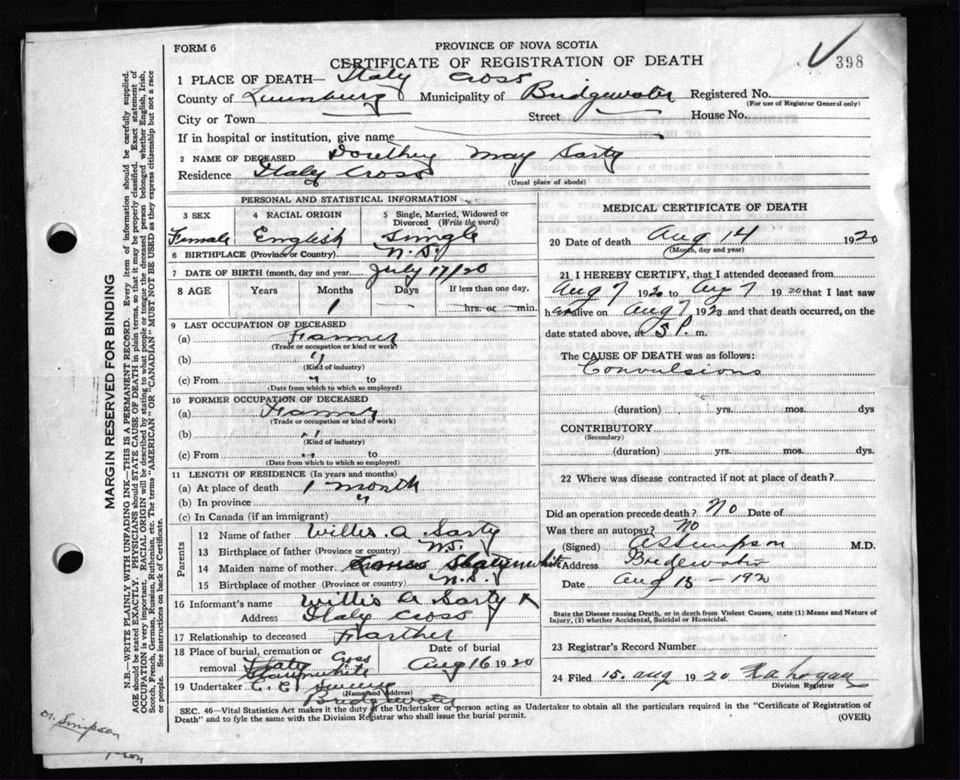 398
FORM 6
PROVINCE OF NOVA SCOTIA
CERTIFICATE OF REGISTRATION OF DEATH
1 PLACE OF DEATH— Italy Cross
County of Lunenburg Municipality of Bridgewater Registered No.
(For use of Registrar General only)
City or Town Street House No.
If in hospital or institution, give name
2 NAME OF DECEASED Dorethey May Sarty
Residence Italy Cross
(Usual place of abode)
PERSONAL AND STATISTICAL INFORMATION
3 SEX 4 RACIAL ORIGIN 5 Single, Married, Widowed or Divorced (Write the word)
Female English Single
6 BIRTHPLACE (Province or Country) N.S.
7 DATE OF BIRTH (month, day and year) July 17/20
8 AGE Years Months Days If less than one day,
1 — hrs. or min.
9 LAST OCCUPATION OF DECEASED
(a) Farmer
(Trade or occupation or kind or work)
(b) "
(Kind of industry)
(c) From " to
(Date from which to which so employed)
10 FORMER OCCUPATION OF DECEASED
(a) Farmer
(Trade or occupation or kind of work)
(b) "
(Kind of industry)
(c) From " to
(Date from which to which so employed)
11 LENGTH OF RESIDENCE (In years and months)
(a) At place of death 1 month
(b) In province "
(c) In Canada (if an immigrant)
Parents
12 Name of father Willis. A. Sarty
13 Birthplace of father (Province or country) N.S.
14 Maiden name of mother
15 Birthplace of mother (Province or country) N.S.
16 Informant's name Willis A Sarty
Address Italy Cross
17 Relationship to deceased Farther
18 Place of burial, cremation or removal Italy Cross
Date of burial
Aug 16 1920
19 Undertaker
(Name and Address)
Bridgewater
MEDICAL CERTIFICATE OF DEATH
20 Date of death Aug 14 1920
(Month, day and year)
21 I HEREBY CERTIFY, that I attended deceased from
Aug 7 1920 to Aug 7 1920 that I last saw
her alive on Aug 7 1920 and that death occurred, on the
date stated above, at 5 P. m.
The CAUSE OF DEATH was as follows:
Convulsions
(duration) yrs. mos. dys
CONTRIBUTORY
(Secondary)
(duration) yrs. mos. dys.
22 Where was disease contracted if not at place of death?
Did an operation precede death? No Date of
Was there an autopsy? No
(Signed) A Simpson M.D.
Address Bridgewater
Date Aug 15 - 1920
State the Disease causing Death, or in death from Violent Causes, state (1) Means and Nature of
Injury, (2) whether Accidental, Suicidal or Homicidal.
23 Registrar's Record Number
24 Filed 15. Aug 1920
Division Registrar
SEC. 46—Vital Statistics Act makes it the duty of the Undertaker or person acting as Undertaker to obtain all the particulars required in the "Certificate of Registration of
Death" and to fyle the same with the Division Registrar who shall issue the burial permit.
(OVER)
MARGIN RESERVED FOR BINDING
N.B.—WRITE PLAINLY WITH UNFADING INK—THIS IS A PERMANENT RECORD. Every item of information should be carefully supplied.
AGE should be stated EXACTLY. PHYSICIANS should STATE CAUSE OF DEATH in plain terms, so that it may be properly classified. Exact statement of
OCCUPATION is very important. RACIAL ORIGIN will be described by stating to what people or tongue the deceased person belonged whether English, Irish,
Scotch, French, German, Russian, Ruthenian, etc. The terms "AMERICAN" OR "CANADIAN" MUST NOT BE USED as they express citizenship but not a race
or people. See instructions on back of Certificate.
Dr. Simpson